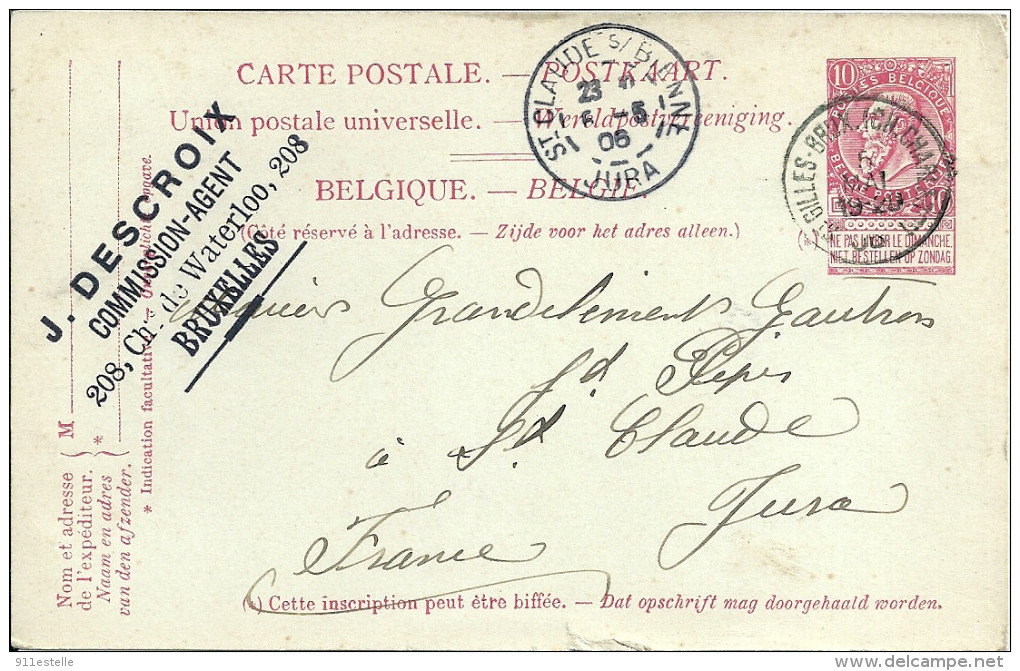 CARTE POSTALE. — POSTKAART.
Union postale universelle. — Wereldpostvereeniging.
BELGIQUE. — BELGIË
(Côté réservé à l'adresse. — Zijde voor het adres alleen.)
J. DESCROIX
COMMISSION-AGENT
208, Ch. de Waterloo, 208
BRUXELLES
ST CLAUDE S/ BIENNE
23
06
JURA
10
POSTES BELGIQUE
10
NE PAS LIVRER LE DIMANCHE,
NIET BESTELLEN OP ZONDAG.
Grandclement Gautron
St
à St Claude
Jura
France
M
Nom et adresse
de l'expéditeur.
Naam en adres
van den afzender.
* Indication facultative.
(*) Cette inscription peut être biffée. — Dat opschrift mag doorgehaald worden.
911estelle
delcampe.net